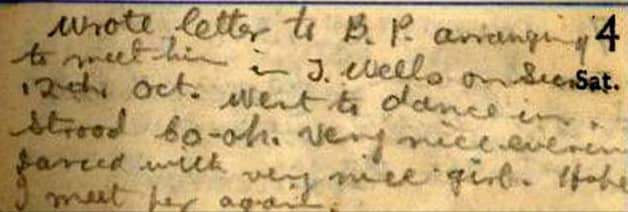 Wrote letter to B. P. arranging 4
to meet him in T. Wells on Sun. Sat.
12th Oct. Went to dance in
Strood Co-op. Very nice evening
Danced with very nice girl. Hope
I meet her again.